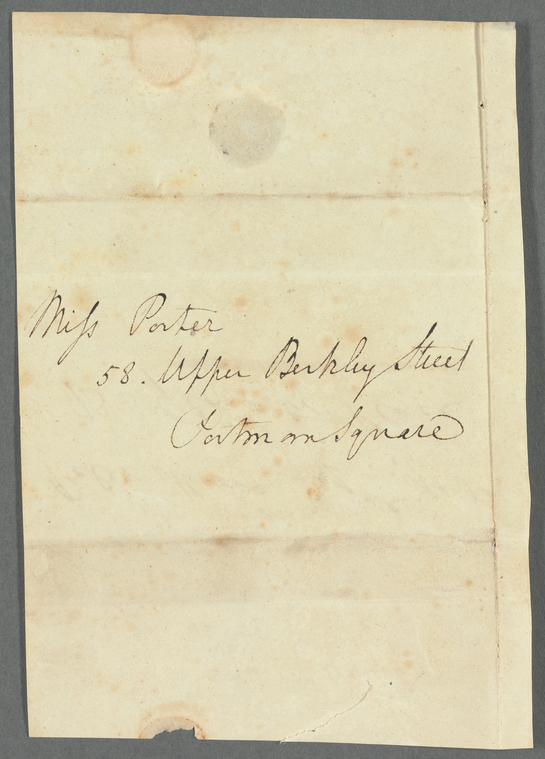 Miss Porter
58. Upper Berkley Street
Portman Square